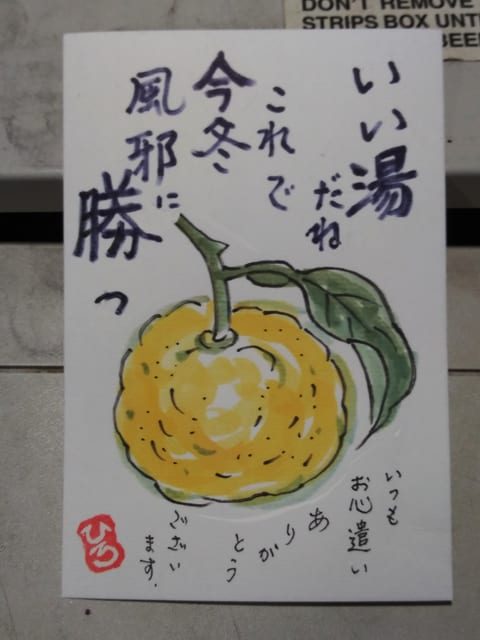 DON'T REMOVE
STRIPS BOX UNT
BEE
いい湯
だね
これで
今冬
風邪に
勝つ
いつも
お心遣い
ありがとう
ございます.
ひろ